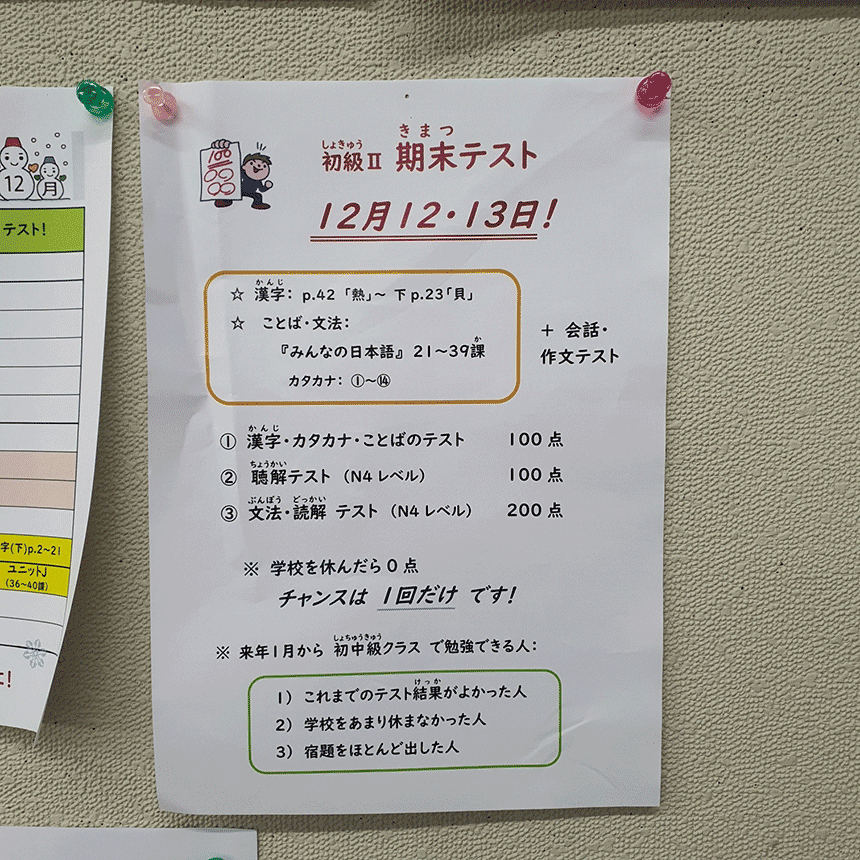 12
月
テスト!
字(下)p.2~21
ユニットJ
(36~40課)
!
きまつ
しょきゅう
初級Ⅱ 期末テスト
12月12・13日!
かんじ
☆ 漢字: p.42 「熱」~ 下p.23「貝」
☆ ことば・文法:
か
『みんなの日本語』 21~39課
カタカナ: ①~⑭
+ 会話・
作文テスト
かんじ
① 漢字・カタカナ・ことばのテスト 100点
ちょうかい
② 聴解テスト (N4レベル) 100点
ぶんぽう どっかい
③ 文法・読解 テスト (N4レベル) 200点
※ 学校を休んだら0点
チャンスは 1回だけ です!
しょちゅうきゅう
※ 来年1月から 初中級クラス で勉強できる人:
けっか
1) これまでのテスト結果がよかった人
2) 学校をあまり休まなかった人
3) 宿題をほとんど出した人